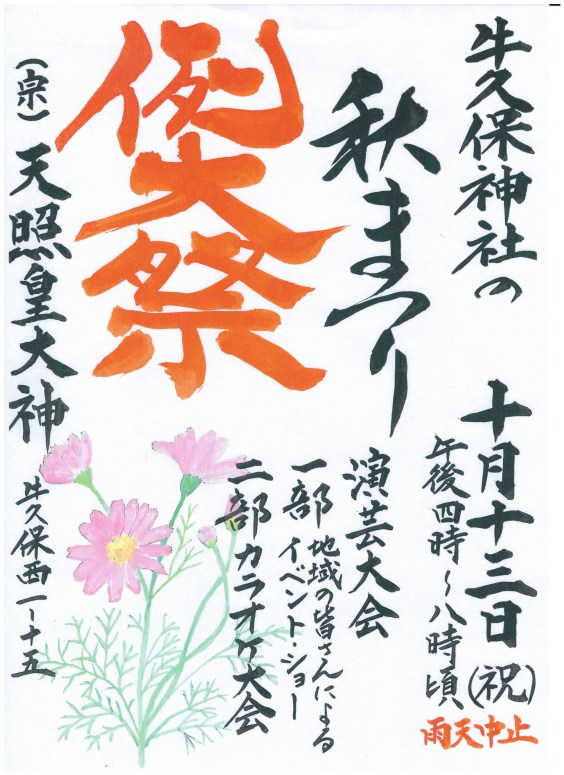 牛久保神社の
秋まつり
例大祭
十月十三日(祝)
午後四時~八時頃
雨天中止
演芸大会
一部 地域の皆さんによる
イベント・ショー
二部 カラオケ大会
(宗) 天照皇大神
牛久保西一ー十五